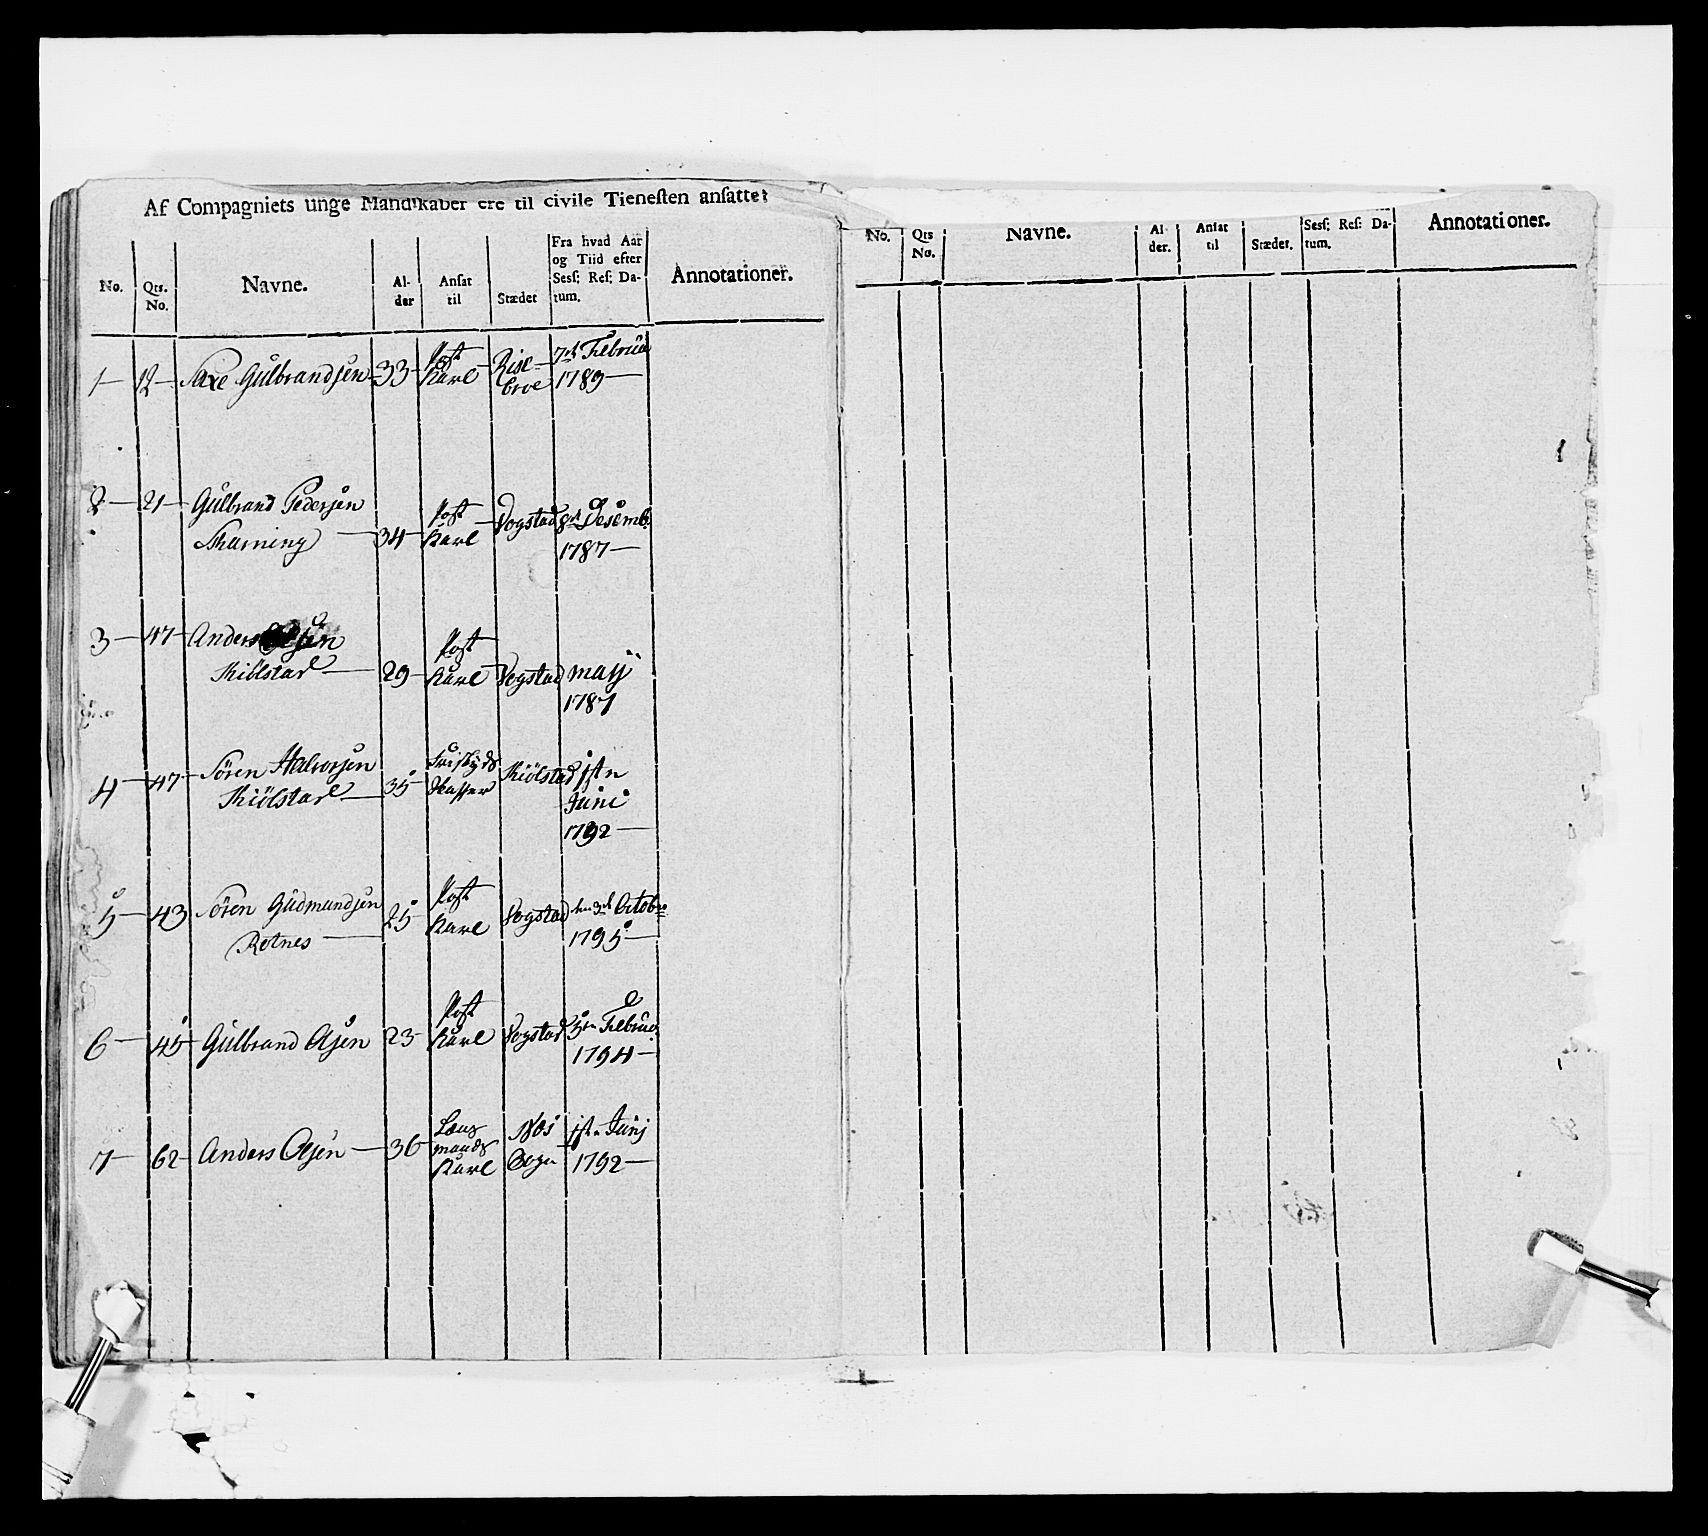 Af Compagniets unge Mandſkaber ere til civile Tieneſten anſatte:
No. Qts. No. Navne. Alder Anſat til Stædet Fra hvad Aar og Tiid efter Seſſ: Reſ: Datum. Annotationer.
1 12 Saxe Gulbrandsen 33 Post Karl Rise broe 7de Februar 1789
2 21 Gulbrand Pedersen
Skurning 34 Post Karl Vogstad 8de Desemb: 1787
3 47 Anders Olsen
Kiölstad 29 Post Karl Vogstad Maij 1787
4 47 Sören Halvorsen
Kiölstad 35 Kiölstad 1ste Juni 1792
5 43 Sören Gudmundsen
Rotnes 25 Post Karl Vogstad den 3de Octobr 1795
6 45 Gulbrand Olsen 23 Post Karl Vogstad 5te Februar 1794
7 62 Anders Olsen 36 Lens mands Karl Næs Sogn 1ste Junj 1792
No. Qts No. Navne. Alder. Anſat til Stædet. Seſſ: Reſ: Datum. Annotationer.